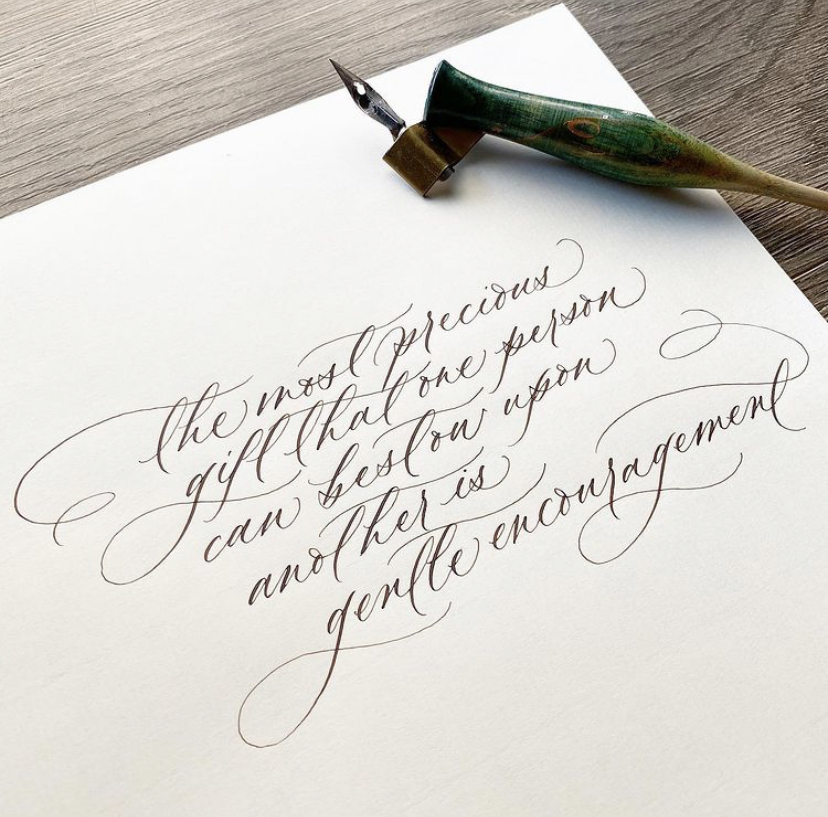 the most precious
gift that one person
can bestow upon
another is
gentle encouragement